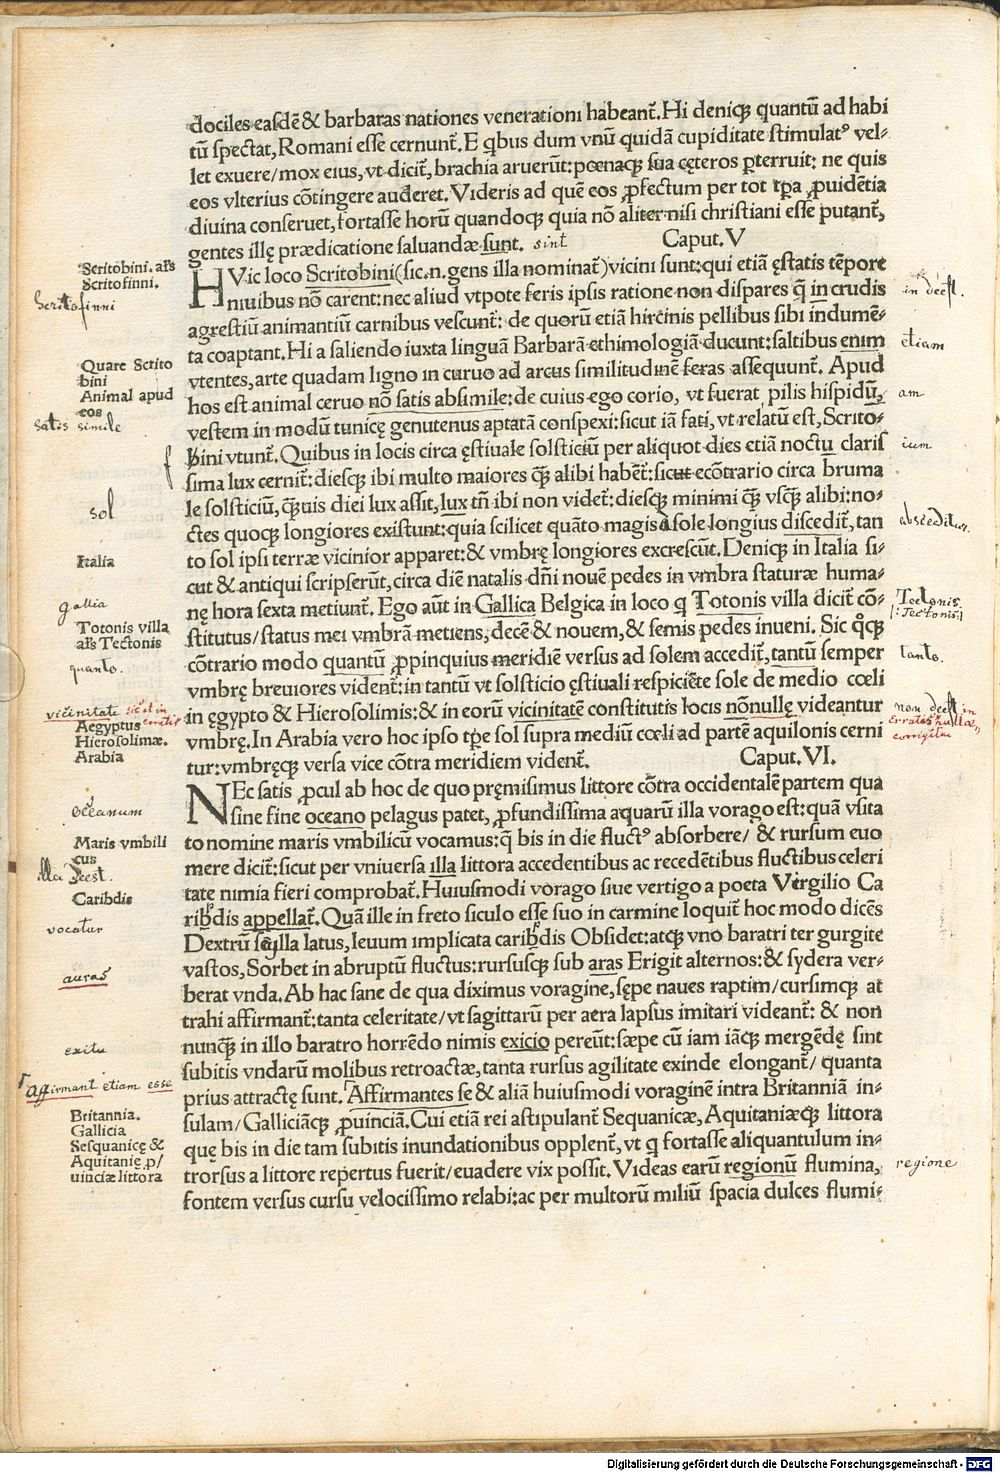 dociles easdē & barbaras nationes venerationi habeant̄. Hi deniqꝫ quantū ad habi
tū spectat, Romani esse cernunt̄. E q̄bus dum vnū quidā cupiditate stimulatꝰ vel⸗
let exuere/mox eius, vt dicit̄, brachia aruerūt: pœnaqꝫ sua cęteros ꝑterruit: ne quis
eos vlterius cōtingere auderet. Videris ad quē eos ꝓfectum per tot tꝑa ꝓuidētia
diuina conseruet, fortasse horū quandoqꝫ quia nō aliter nisi christiani esse putant̄,
gentes illę prædicatione saluandæ sunt. sint Caput. V
Scritobini. als
Scritofinni.
Scritofinni
HVic loco Scritobini (sic. n. gens illa nominat̄) vicini sunt: qui etiā ęstatis tēpore
niuibus nō carent: nec aliud vtpote feris ipsis ratione non dispares q̄ in crudis
in deest.
agrestiū animantiū carnibus vescunt̄: de quorū etiā hircinis pellibus sibi indumē⸗
ta coaptant. Hi a saliendo iuxta linguā Barbarā ethimologiā ducunt: saltibus enim
etiam
Quare Scrito
bini
Animal apud
eos
satis simile
vtentes, arte quadam ligno in curuo ad arcus similitudinē feras assequunt̄. Apud
hos est animal ceruo nō satis absimile: de cuius ego corio, vt fuerat pilis hispidū,
am
vestem in modū tunicę genutenus aptatā conspexi: sicut iā fati, vt relatū est, Scrito⸗
f
bini vtunt̄. Quibus in locis circa ęstiuale solsticiū per aliquot dies etiā noctu claris
ium
sima lux cernit̄: diesqꝫ ibi multo maiores q̄ꝫ alibi habēt̄: sicut econtrario circa bruma
sol
le solsticiū, q̄ꝫuis diei lux assit, lux tn̄ ibi non videt̄: diesqꝫ minimi q̄ꝫ vsq̄ꝫ alibi: no⸗
ctes quoqꝫ longiores existunt: quia scilicet quāto magis a sole longius discedit̄, tan
absceditur.
Italia
to sol ipsi terræ vicinior apparet: & vmbrę longiores excrescūt. Deniqꝫ in Italia si⸗
cut & antiqui scripserūt, circa diē natalis dn̄i nouē pedes in vmbra staturæ huma⸗
gallia
nę hora sexta metiunt̄. Ego aūt in Gallica Belgica in loco q̄ Totonis villa dicit̄ cō⸗
Tectonis
Tectonis
Totonis villa
als Tectonis
stitutus/status mei vmbrā metiens, decē & nouem, & semis pedes inueni. Sic q̊qꝫ
quanto.
cōtrario modo quantū ꝓpinquius meridiē versus ad solem accedit̄, tantū semper
tanto.
vmbrę breuiores vident̄: in tantū vt solsticio ęstiuali respiciēte sole de medio cœli
vicinitate
Aegyptus
Hierosolimæ.
Arabia
in ęgypto & Hierosolimis: & in eorū vicinitatē constitutis locis nōnullę videantur
non deest
vmbrę. In Arabia vero hoc ipso tꝑe sol supra mediū cœli ad partē aquilonis cerni
tur: vmbręqꝫ versa vice cōtra meridiem vident̄. Caput. VI.
NEc satis ꝓcul ab hoc de quo pręmisimus littore cōtra occidentalē partem qua
oceanum
sine fine oceano pelagus patet, ꝓfundissima aquarū illa vorago est: quā vsita
Maris vmbili
cus
illa deest.
Caribdis
to nomine maris vmbilicū vocamus: q̄ bis in die fluctꝰ absorbere/ & rursum euo
mere dicit̄: sicut per vniuersa illa littora accedentibus ac recedētibus fluctibus celeri
tate nimia fieri comprobat̄. Huiusmodi vorago siue vertigo a poeta Virgilio Ca
vocatur
ribdis appellat̄. Quā ille in freto siculo esse suo in carmine loquit̄ hoc modo dicēs
Dextrū scylla latus, leuum implicata caribdis Obsidet: atqꝫ vno baratri ter gurgite
auras
vastos, Sorbet in abruptū fluctus: rursusqꝫ sub aras Erigit alternos: & sydera ver⸗
berat vnda. Ab hac sane de qua diximus voragine, sępe naues raptim/cursimqꝫ at
trahi affirmant̄: tanta celeritate/vt sagittarū per aera lapsus imitari videant̄: & non
exitu
nunq̄ꝫ in illo baratro horrēdo nimis exicio pereūt: sæpe cū iam iāqꝫ mergēdę sint
subitis vndarū molibus retroactæ, tanta rursus agilitate exinde elongant̄/ quanta
Affirmant etiam esse
prius attractę sunt. Affirmantes se & aliā huiusmodi voraginē intra Britanniā in⸗
Britannia.
Gallicia
Sesquanicę &
Aquitanię ꝓ/
uinciæ littora
sulam/Galliciāqꝫ ꝓuinciā. Cui etiā rei astipulant̄ Sequanicæ, Aquitaniæqꝫ littora
quę bis in die tam subitis inundationibus opplent̄, vt q̄ fortasse aliquantulum in⸗
trorsus a littore repertus fuerit/euadere vix possit. Videas earū regionū flumina,
regione
fontem versus cursu velocissimo relabi: ac per multorū miliū spacia dulces flumi⸗
Digitalisierung gefördert durch die Deutsche Forschungsgemeinschaft - DFG